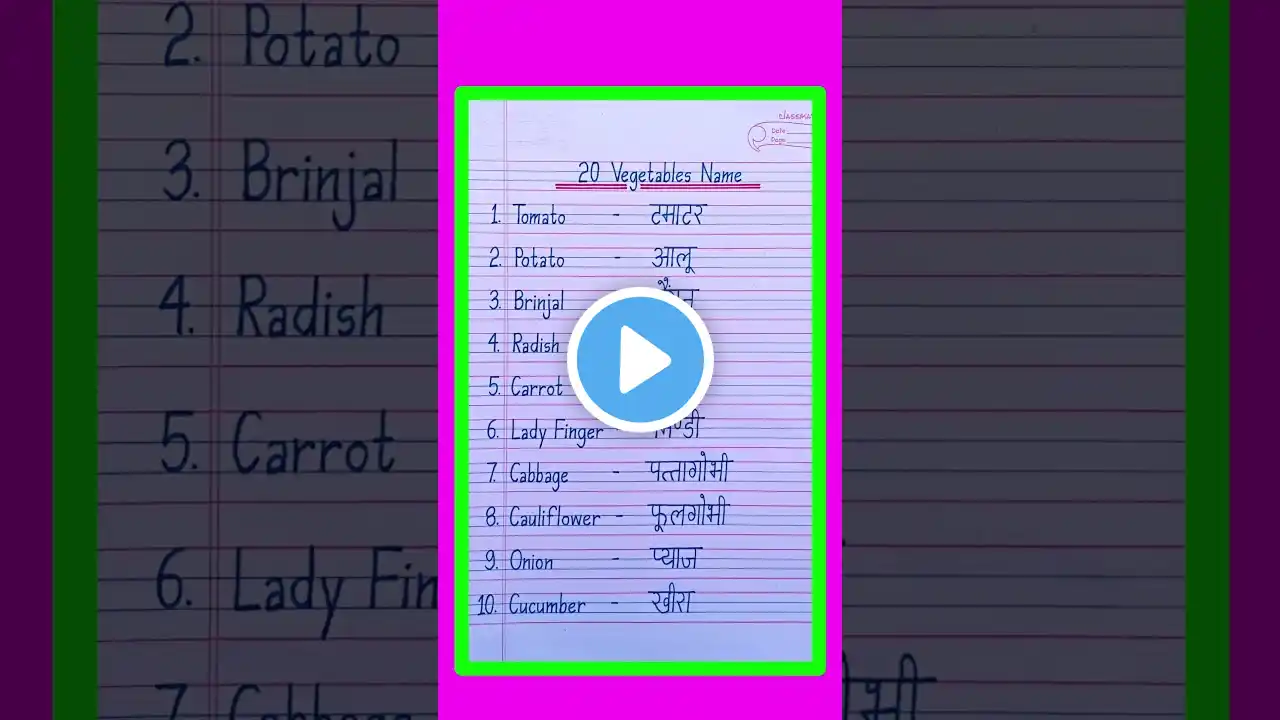 CLASSMA
Date
Page
20 Vegetables Name
1. Tomato - टमाटर
2. Potato - आलू
3. Brinjal
4. Radish
5. Carrot
6. Lady Finger - भिण्डी
7. Cabbage - पत्तागोभी
8. Cauliflower - फूलगोभी
9. Onion - प्याज
10. Cucumber - खीरा
2. Potato
3. Brinjal
4. Radish
5. Carrot
6. Lady Fin
7. Cabbage